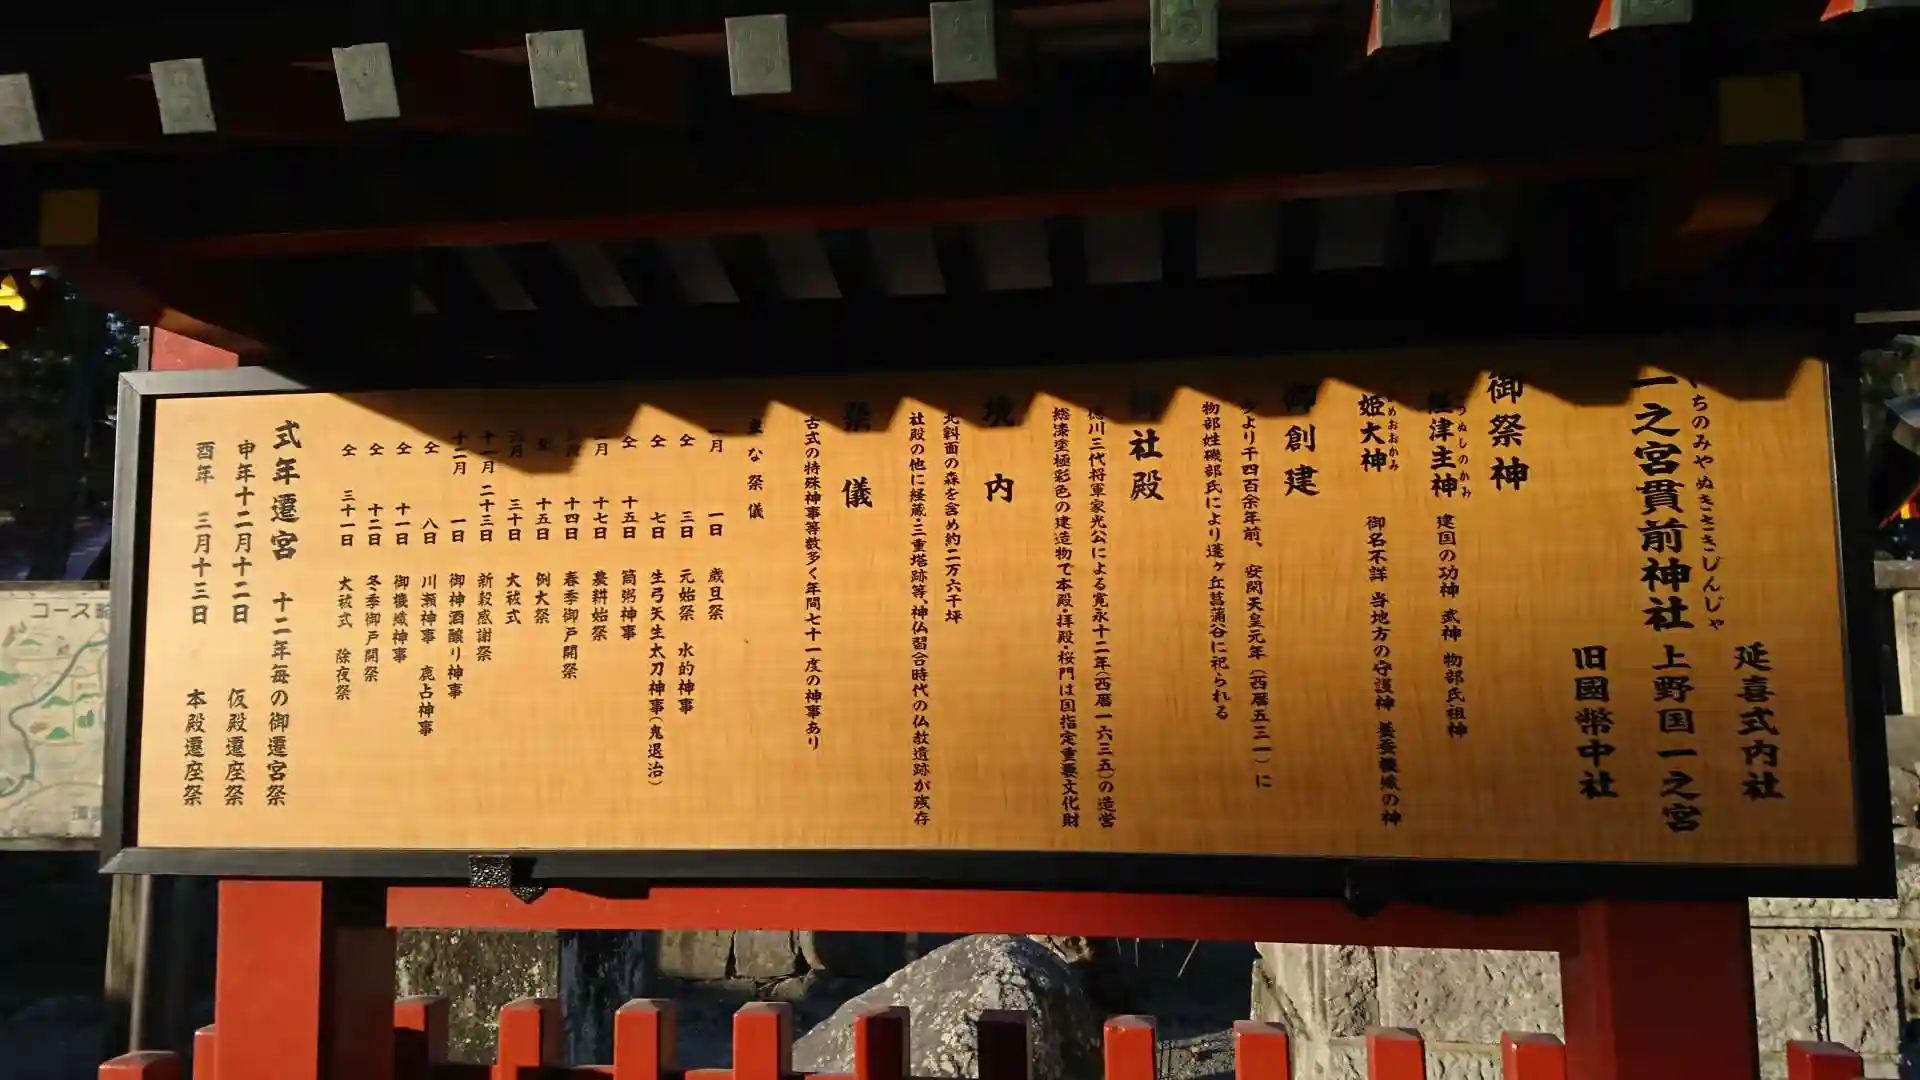 延喜式内社
いちのみやぬきさきじんじゃ
一之宮貫前神社 上野国一之宮
旧國幣中社
御祭神
経津主神 建国の功神 武神 物部氏祖神
ふつぬしのかみ
姫大神 御名不詳 当地方の守護神 養蚕機織の神
ひめおおかみ
御創建
今より千四百余年前、安閑天皇元年(西暦五三一)に
物部姓磯部氏により蓬ヶ丘菖蒲谷に祀られる
御社殿
徳川三代将軍家光公による寛永十二年(西暦一六三五)の造営
総漆塗極彩色の建造物で本殿・拝殿・桜門は国指定重要文化財
境内
北斜面の森を含め約二万六千坪
社殿の他に経蔵・三重塔跡等、神仏習合時代の仏教遺跡が残存
祭儀
古式の特殊神事等数多く年間七十一度の神事あり
主な祭儀
一月 一日 歳旦祭
仝 三日 元始祭 水的神事
仝 七日 生弓矢生太刀神事(鬼退治)
仝 十五日 筒粥神事
二月 十七日 農耕始祭
三月 十四日 春季御戸開祭
仝 十五日 例大祭
六月 三十日 大祓式
十一月 二十三日 新穀感謝祭
十二月 一日 御神酒醸り神事
仝 八日 川瀬神事 鹿占神事
仝 十一日 御機織神事
仝 十二日 冬季御戸開祭
仝 三十一日 大祓式 除夜祭
式年遷宮 十二年毎の御遷宮祭
申年十二月十二日 仮殿遷座祭
酉年 三月十三日 本殿遷座祭
コース